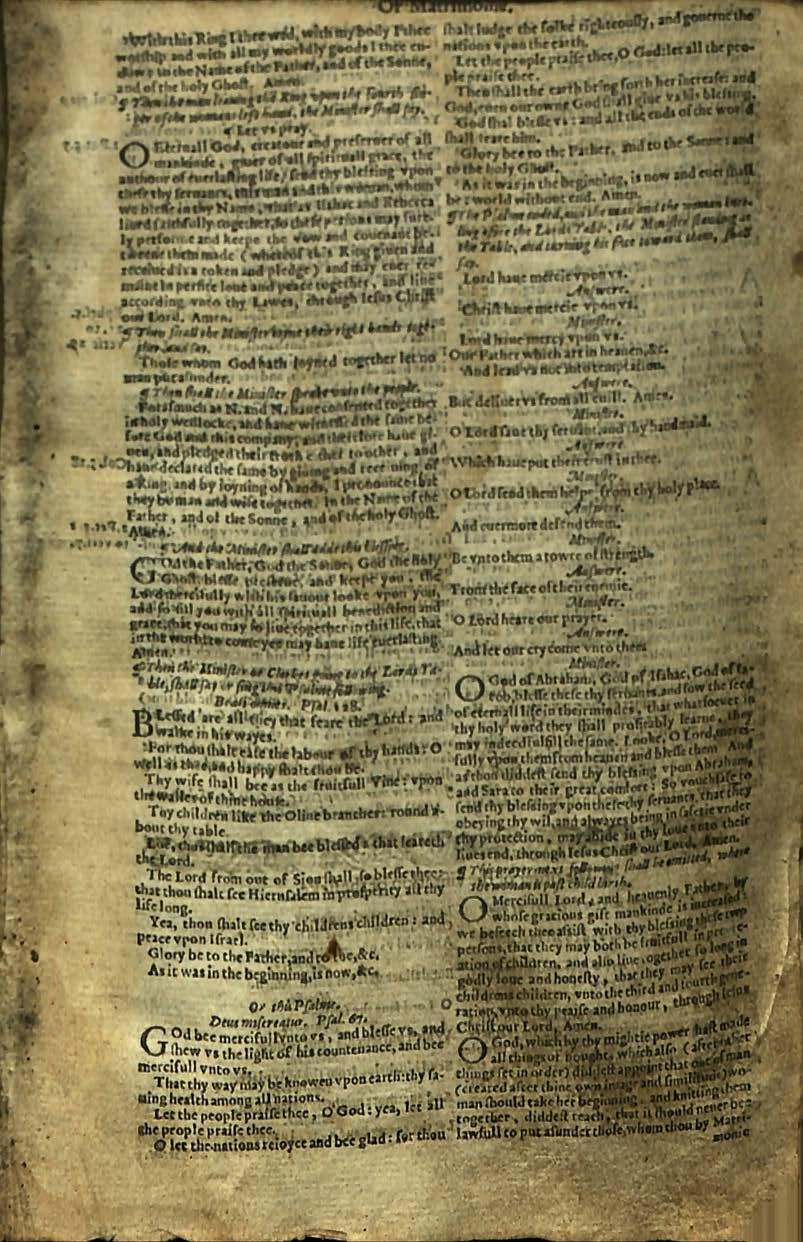 Of Matrimonie.
With this Ring I thee wed, with my body I thee
worship and with all my worldly goods I thee en-
dow: in the Name of the Father, and of the Sonne,
and of the holy Ghost. Amen.
¶ Then the man leaving the Ring upon the fourth fin-
ger of the womans left hand, the Minister shall say,
¶ Let vs pray.
O Eternall God, creatour and preseruer of all
mankinde, giuer of all spirituall grace, the
authour of euerlasting life, send thy blessing vpon
these thy seruants, this man and this woman, whom
we blesse in thy Name, that as Isaac and Rebecca
liued faithfully together, so these persons may sure-
ly performe and keepe the vow and couenant be-
twene them made (whereof this Ring giuen and
receiued is a token and pledge) and may euer re-
maine in perfice loue and peace together, and liue
according vnto thy Lawes, through Iesus Christ
our Lord. Amen.
¶ Then shall the Minister ioyne their right hands toge-
ther and say.
Those whom God hath ioyned together let no
man put asunder.
¶ Then shall the Minister speake vnto the people.
Forasmuch as N. and N. haue consented together
in holy wedlocke, and haue witnessed the same be-
fore God and this company, and therefore haue gi-
uen, and pledged their troth either to other, and
haue declared the same by giuing and receiuing of
a Ring, and by ioyning of hands, I pronounce that
they be man and wife together. In the Name of the
Father, and of the Sonne, and of the holy Ghost.
Amen.
¶ And the Minister shall adde this blessing.
GOd the Father, God the Sonne, God the holy
Ghost, blesse, preserue, and keepe you, the
Lord mercifully with his fauour looke vpon you,
and so fill you with all spirituall benediction and
grace, that you may so liue together in this life, that
in the world to come yee may haue life euerlasting.
Amen.
¶ Then the Minister or Clerkes going to the Lords Ta-
ble, shall say or sing this Psalme following.
Beati omnes. Psal. 128.
BLessed are all they that feare the Lord: and
walke in his wayes.
For thou shalt eate the labour of thy hands: O
well is thee, and happy shalt thou be.
Thy wife shall bee as the fruitfull Vine: vpon
the walles of thine house.
Thy children like the Oliue branches: round a-
bout thy table.
Loe, thus shall the man bee blessed: that feareth
the Lord.
The Lord from out of Sion shall so blesse thee:
that thou shalt see Hierusalem in prosperity all thy
life long.
Yea, thou shalt see thy childrens children: and
peace vpon Israel.
Glory be to the Father, and to the, &c.
As it was in the beginning, is now, &c.
Or this Psalme.
Deus misereatur. Psal. 67.
GOd bee mercifull vnto vs, and blesse vs, and
shew vs the light of his countenance, and bee
mercifull vnto vs.
That thy way may be knowen vpon earth: thy sa-
uing health among all nations.
Let the people praise thee, O God: yea, let all
the people praise thee.
O let the nations reioyce and bee glad: for thou
shalt iudge the folke righteously, and gouerne the
nations vpon the earth.
Let the people praise thee, O God: let all the peo-
ple praise thee.
Then shall the earth bring forth her increase: and
God, euen our owne God shall giue vs his blessing.
God shal blesse vs: and all the ends of the world
shall feare him.
Glory bee to the Father, and to the Sonne: and
to the holy Ghost.
As it was in the beginning, is now and euer shall
be: world without end. Amen.
¶ The Psalme ended, and the man and the woman knee-
ling afore the Lords Table, the Minister standing at
the Table, and turning his face toward them, shall
say,
Lord haue mercie vpon vs.
Answere.
Christ haue mercie vpon vs.
Minister.
Lord haue mercy vpon vs.
Our Father which art in heauen, &c.
And lead vs not into temptation.
Answere.
But deliuer vs from all euill. Amen.
Minister.
O Lord saue thy seruant, and thy handmaid.
Answere.
Which haue put their trust in thee.
Minister.
O Lord send them helpe from thy holy place.
Answere.
And euermore defend them.
Minister.
Be vnto them a towre of strength.
Answere.
From the face of their enemie.
Minister.
O Lord heare our prayer.
Answere.
And let our cry come vnto thee.
Minister.
O God of Abraham, God of Isahac, God of Ia-
cob, blesse these thy seruants, and sow the seed
of eternall life in their mindes, that whatsoeuer in
thy holy word they shall profitably learne, they
may indeed fulfill the same. Looke, O Lord, merci-
fully vpon them from heauen and blesse them. And
as thou diddest send thy blessing vpon Abraham,
and Sara to their great comfort: So vouchsafe to
send thy blessing vpon these thy seruants, that they
obeying thy wil, and alwayes being in safetie vnder
thy protection, may abide in thy loue vnto their
liues end, through Iesus Christ our Lord, Amen.
¶ This prayer next following shall be omitted, where
the woman is past child birth.
O Mercifull Lord, and heauenly Father, by
whose gracious gift mankinde is increased:
we beseech thee assist with thy blessing these two
persons, that they may both be fruitfull in procre-
ation of children, and also liue together so long in
godly loue and honesty, that they may see their
childrens children, vnto the third and fourth gene-
ration, vnto thy praise and honour, through Iesus
Christ our Lord, Amen.
O God, which by thy mightie power hast made
all things of nought, which also (after other
things set in order) diddest appoint that out of man
(created after thine own image and similitude) wo-
man should take her beginning, and knitting them
together, diddest teach, that it should neuer bee
lawfull to put asunder those, whom thou by Matri-
monie